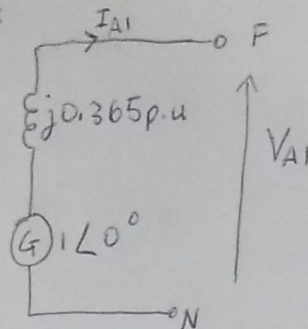 I_A1
F
j0.365p.u
V_A1
G 1∠0°
N